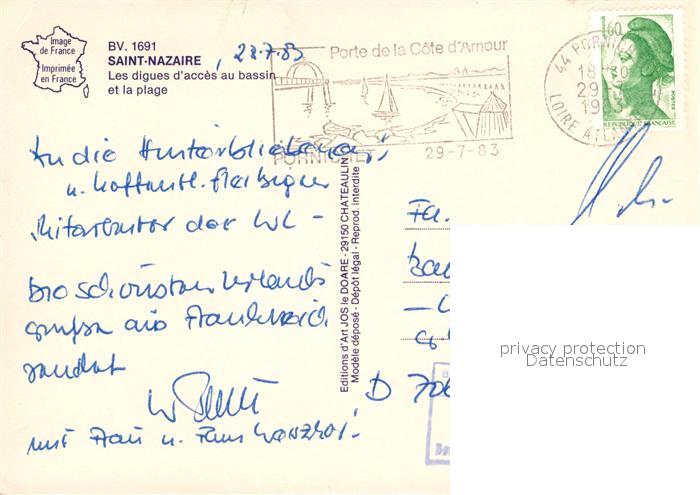 Image
de France
Imprimée
en France
BV. 1691
SAINT-NAZAIRE, 28.7.83
Les digues d'accès au bassin
et la plage
Porte de la Côte d'Amour
PORNICHET 29-7-83
44 PORNIC
18
29-
1983
LOIRE ATL
1,60
POSTES
REPUBLIQUE FRANÇAISE
An die Hinterbliebenen,
u. hoffentl. fleißigen
Mitarbeiter der WL -
die schönsten Urlaubs
grüße aus Frankreich
sendet
mit Frau u.
Editions d'Art JOS le DOARE - 29150 CHATEAULIN
Modèle déposé - Dépôt légal - Reprod. interdite
Fa.
D 70
privacy protection
Datenschutz